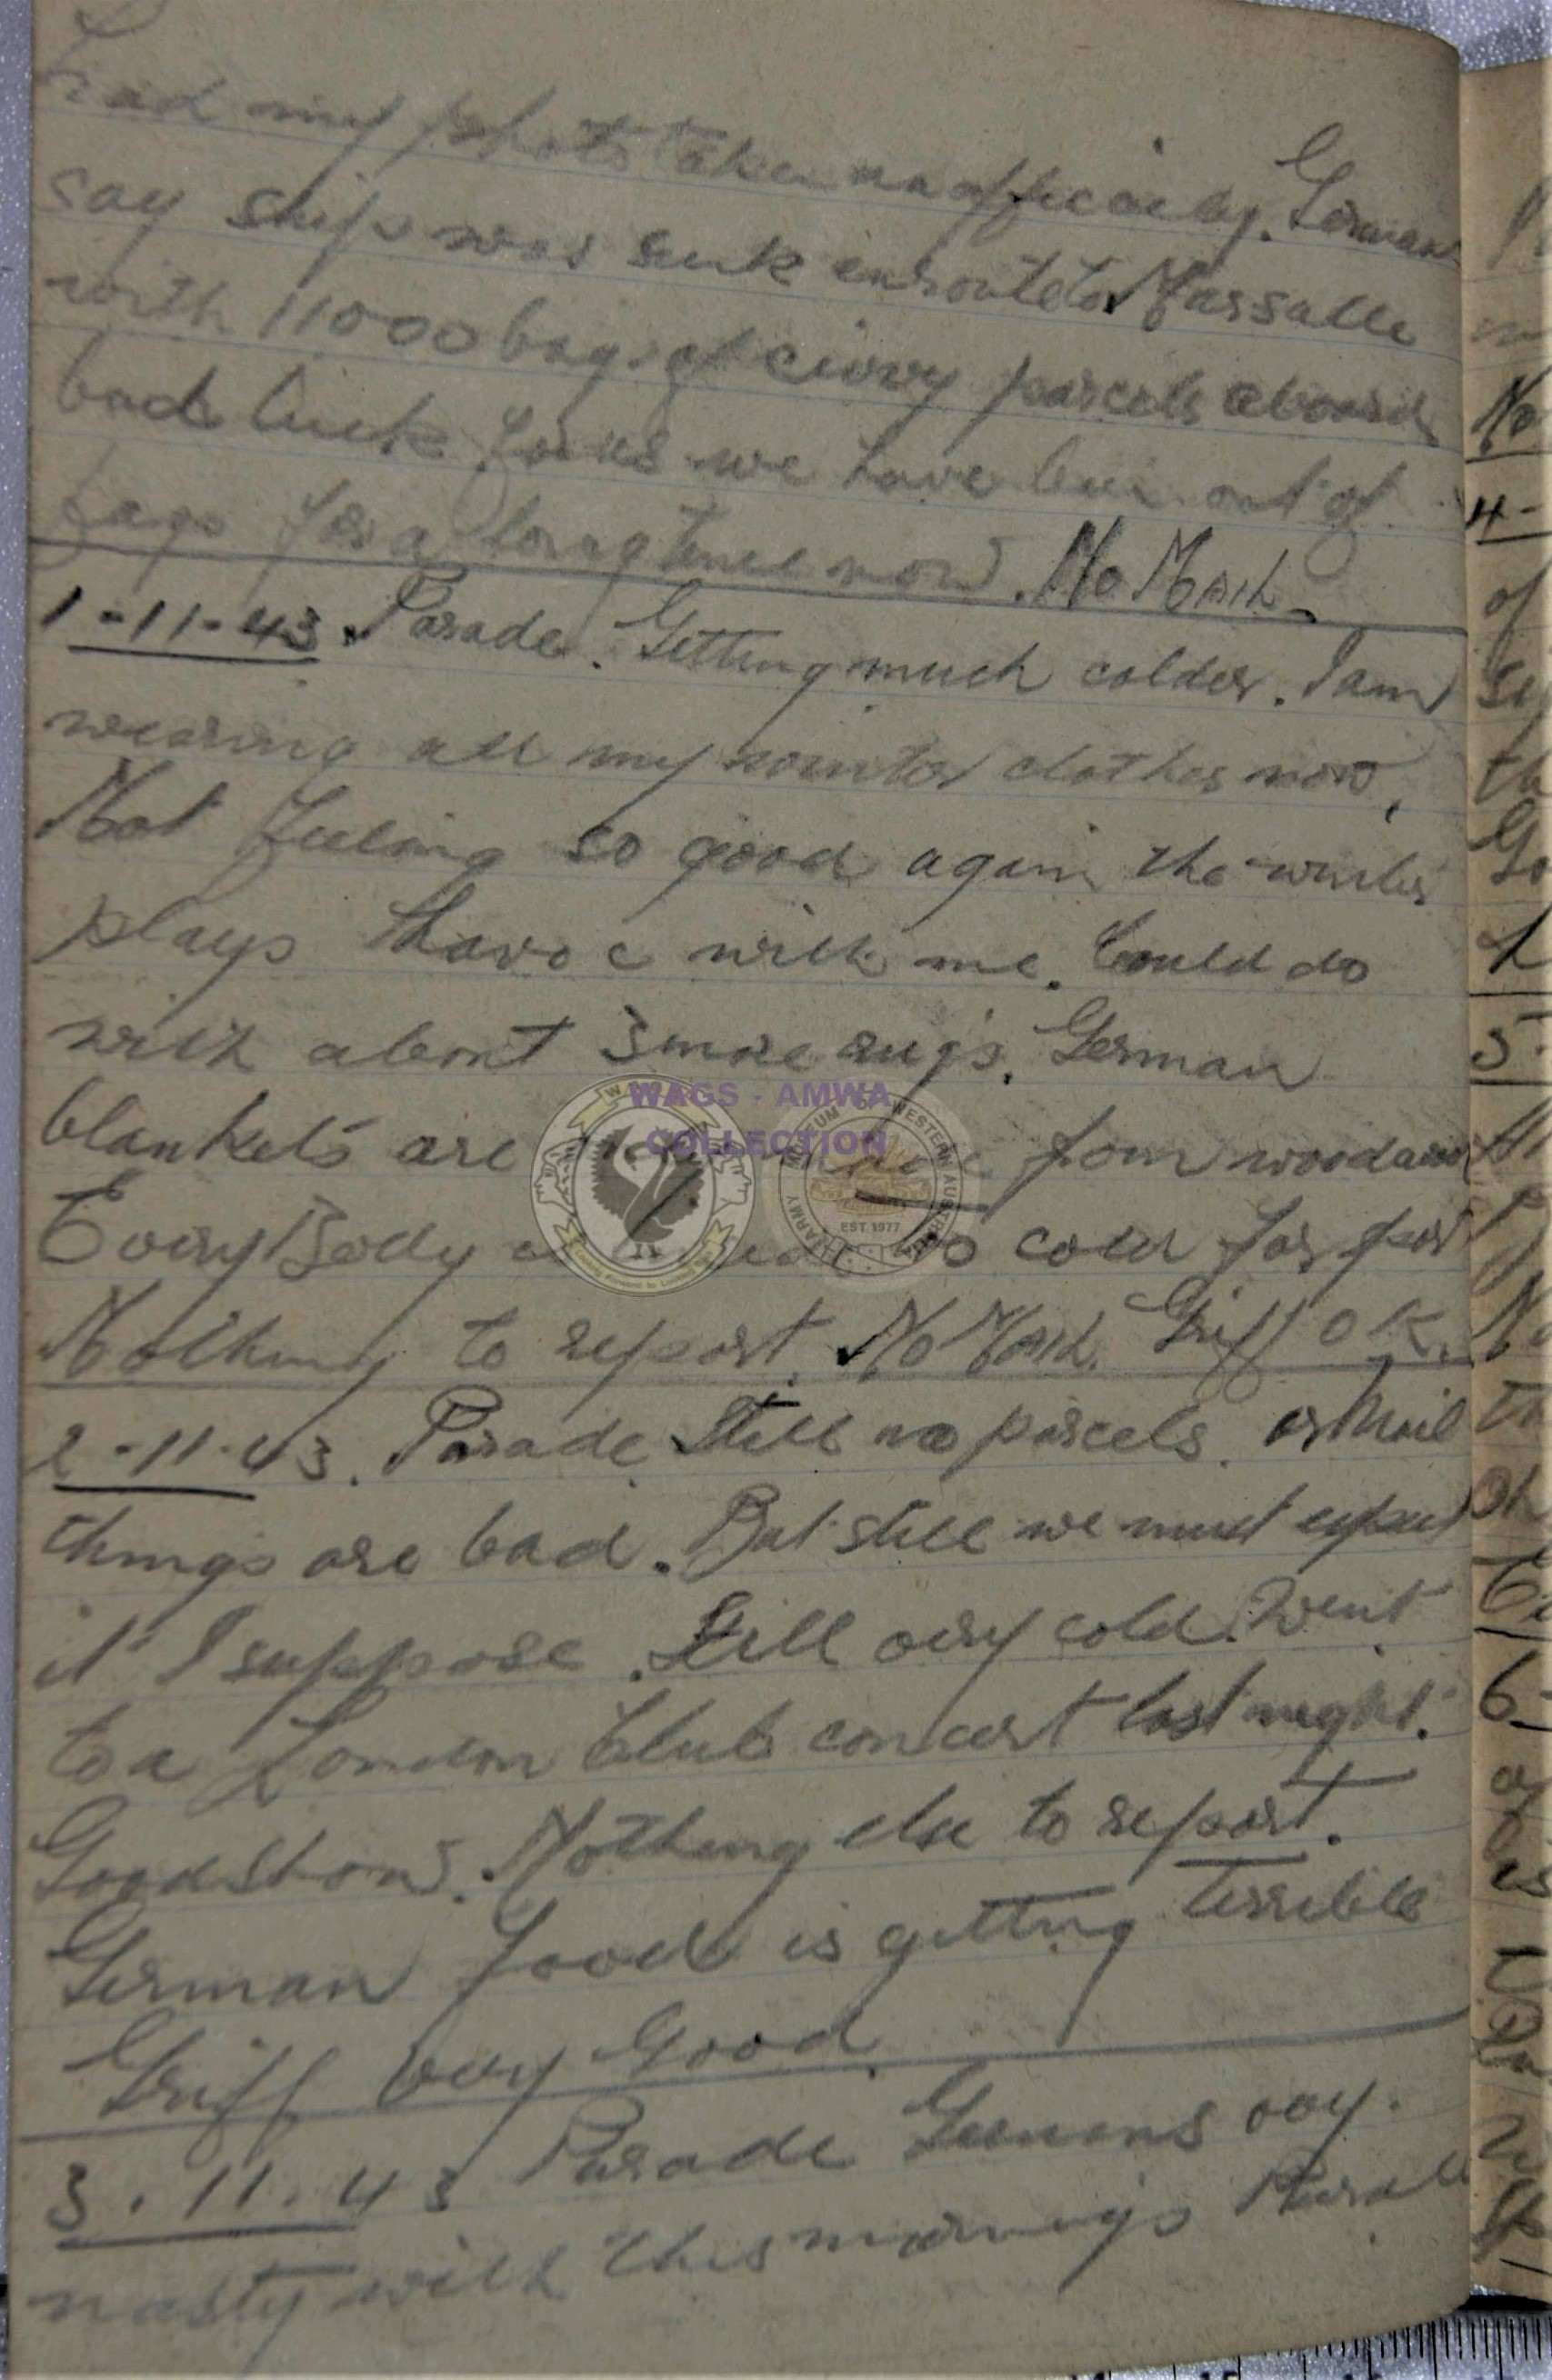 had my photo taken unofficially. Germans
say ship was sunk enroute to Marsalle
with 11000 bags of civvy parcels aboard
bad luck for us we have been out of
fags for a long time now. No Mail.
1-11-43. Parade. Getting much colder. I am
wearing all my winter clothes now.
Not feeling so good again the winter
plays havoc with me. Could do
with about 3 more rugs. German
blankets are made from wood
Every Body cold for
Nothing to report. No Mail. Griff OK.
2-11-43. Parade. Still no parcels or Mail
things are bad. But still we must expect
it I suppose. Still very cold. Went
to a London Club concert last night.
Good show. Nothing else to report.
German food is getting terrible
Griff very Good.
3.11.43 Parade Germans very
nasty with this mornings
WAGS - AMWA
COLLECTION
ARMY MUSEUM OF WESTERN AUSTRALIA
EST 1977